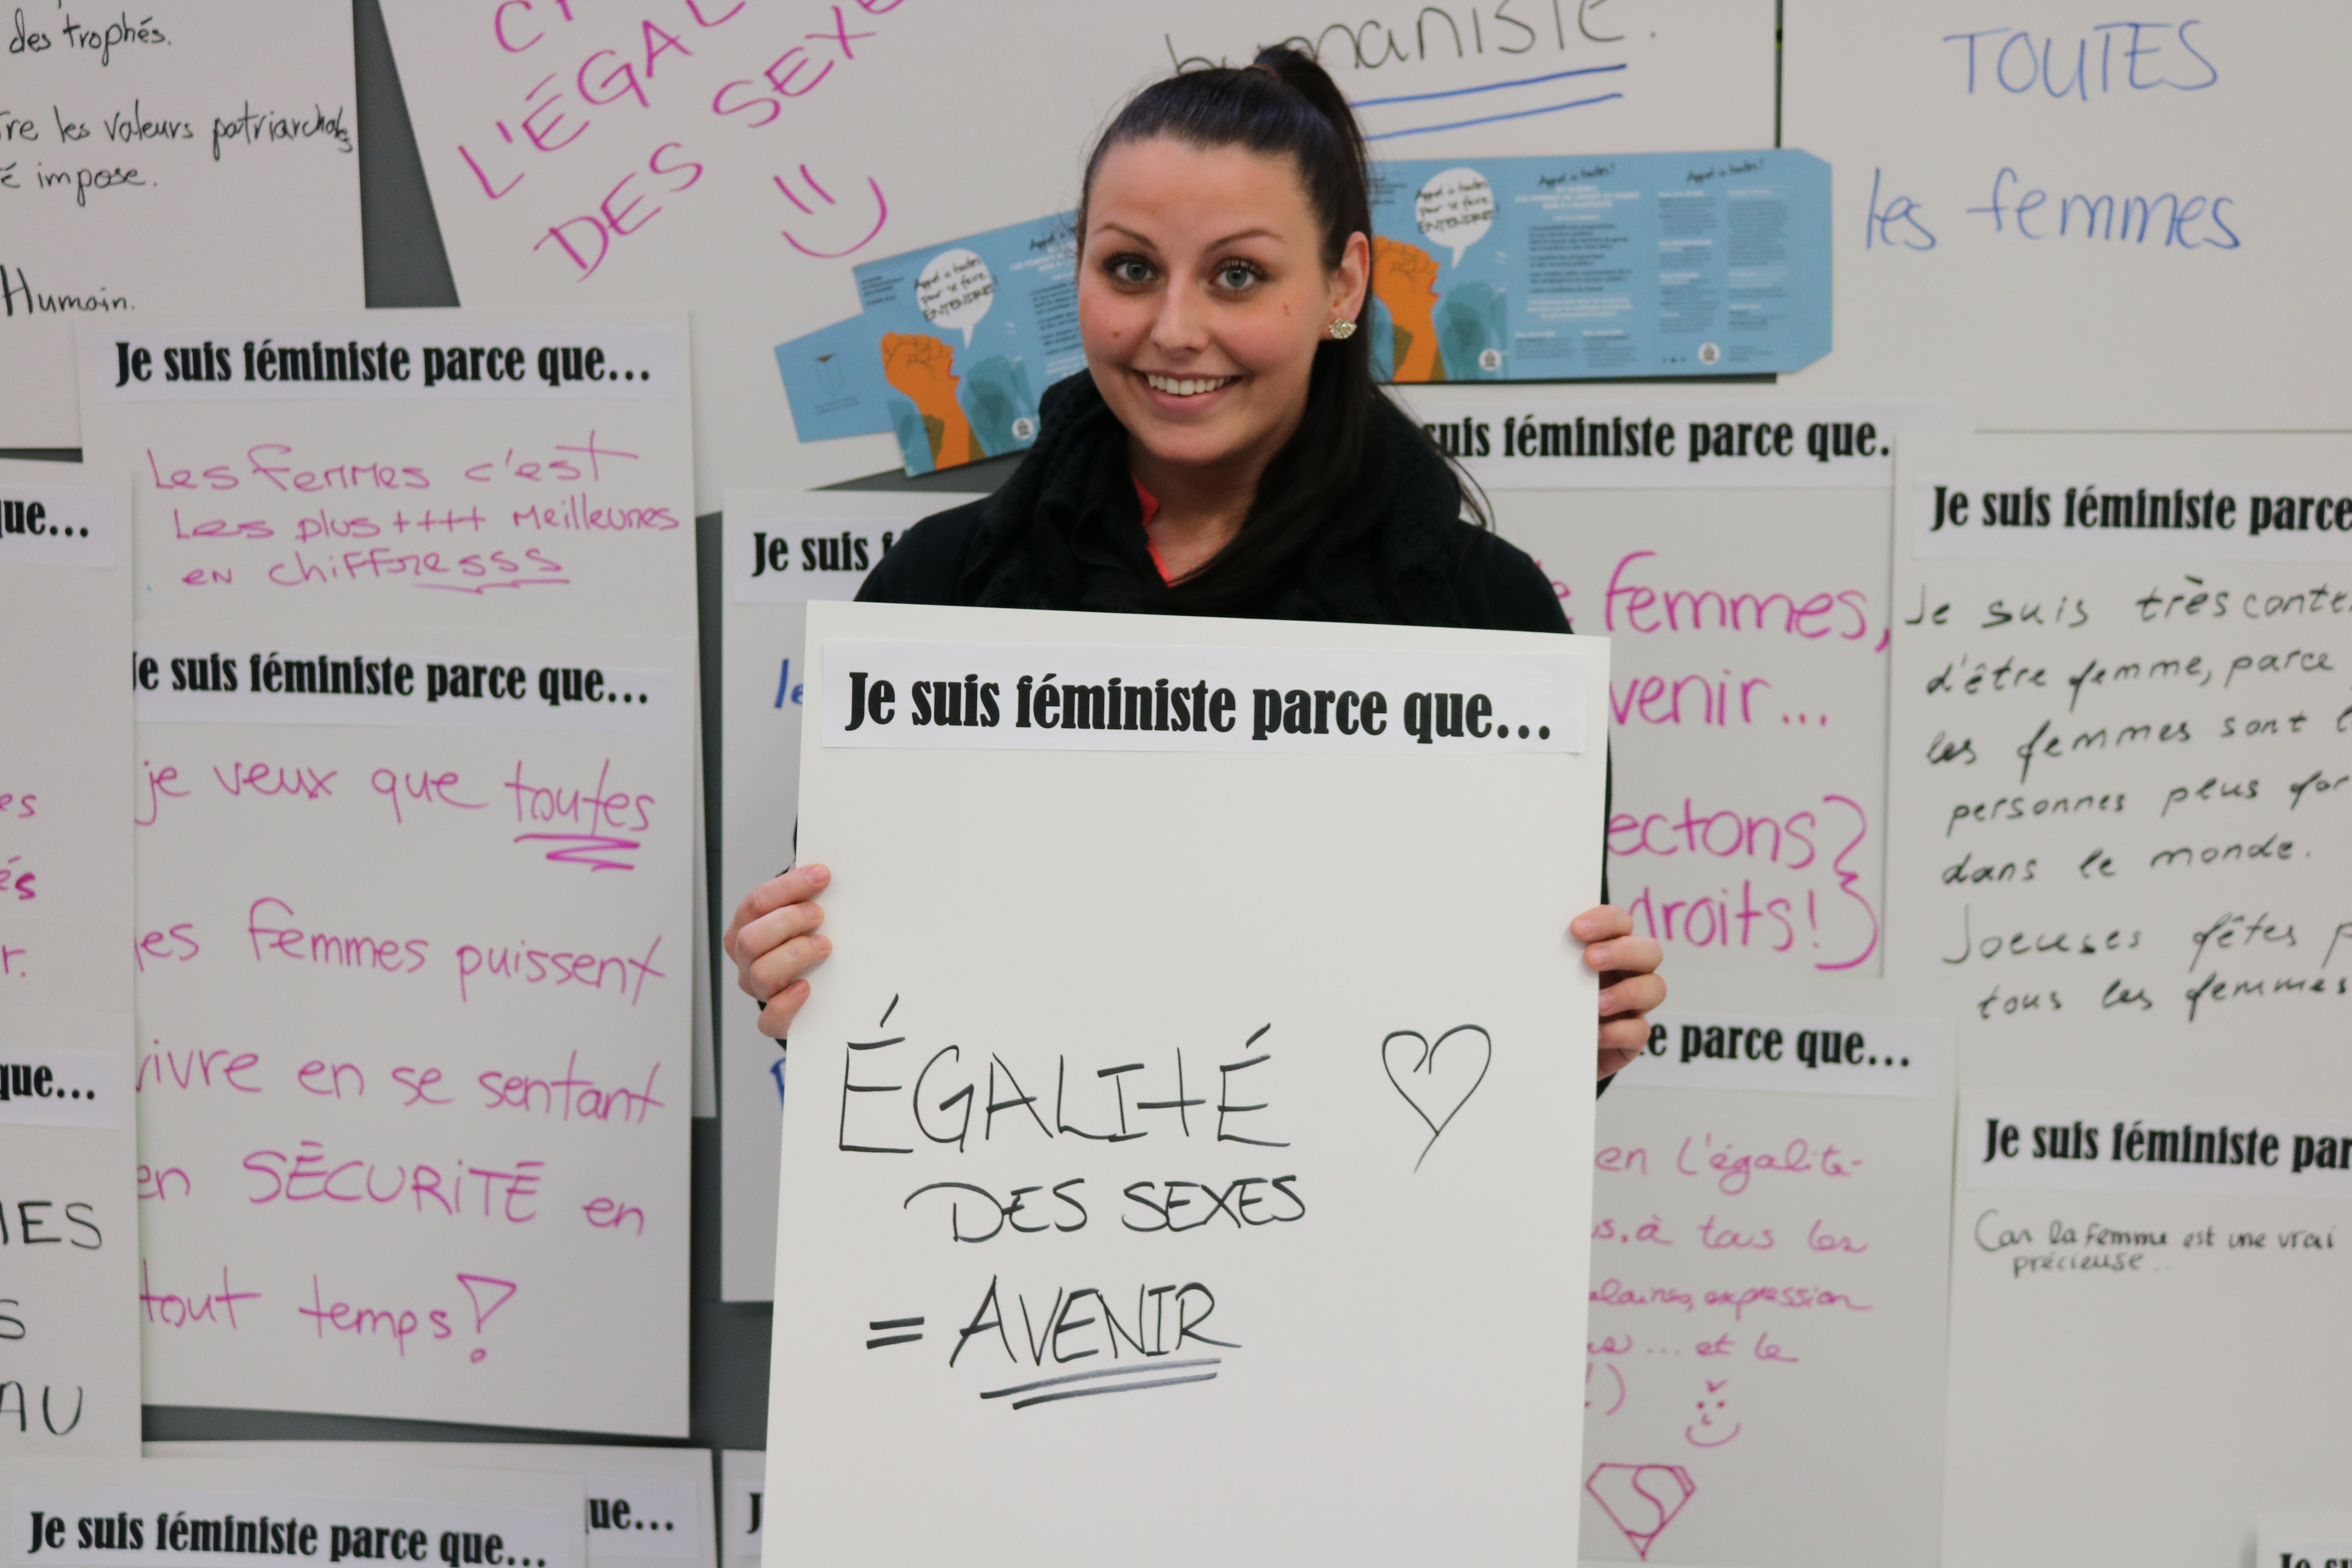 des trophés.
les valeurs patriarchals
impose.
Humain.
L'ÉGAL
DES SEXE
humaniste.
TOUTES
les femmes
Appel à toutes
pour se faire
ENTENDRE!
Appel à toutes
pour se faire
ENTENDRE!
Appel à toutes!
Appel à toutes!
Je suis féministe parce que...
Les femmes c'est
Les plus ++++ Meilleures
en chiffresss
que...
Je suis féministe parce que...
je veux que toutes
les femmes puissent
vivre en se sentant
en SÉCURITÉ en
tout temps!
es
és
r.
que...
MES
S
AU
Je suis féministe parce que...
que...
Je suis f
le
Je suis féministe parce que...
ÉGALITÉ
DES SEXES
= AVENIR
suis féministe parce que.
femmes,
venir...
ectons
droits!
Je suis féministe parce
Je suis très conte
d'être femme, parce
les femmes sont l
personnes plus for
dans le monde.
Joeuses fêtes p
tous les femmes
e parce que...
en l'égalité
s, à tous les
alaires, expression
... et le
!)
S
Je suis féministe par
Car la femme est une vrai
précieuse..
J
Je